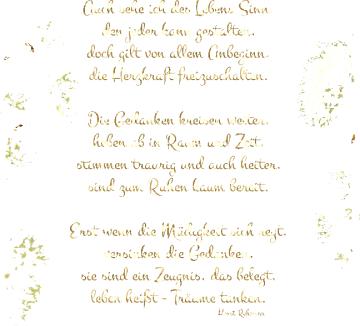 Auch sehe ich des Lebens Sinn
den jeder kann gestalten.
doch gilt von allem Anbeginn
die Herzkraft freizuschalten.
Die Gedanken kreisen weiter.
heben ab in Raum und Zeit.
stimmen traurig und auch heiter.
sind zum Ruhen kaum bereit.
Erst wenn die Müdigkeit sich regt.
versinken die Gedanken.
sie sind ein Zeugnis. das belegt.
leben heißt - Träume tanken.
Horst Rehmann